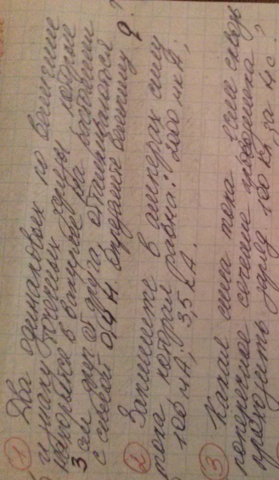 ① Два одинаковых по величине
и знаку точечных заряда которые
находятся в вакууме на расстоянии
3 см друг от друга, отталкиваются
с силой 0,4 Н. Определите величину q?
② Запишите в амперах силу
тока которая равна: 2000 мкА;
100 мА; 3,5 кА.
③ Какая сила тока если сквозь
поперечное сечение проводника
проходит заряд 100 Кл, за 4 с.